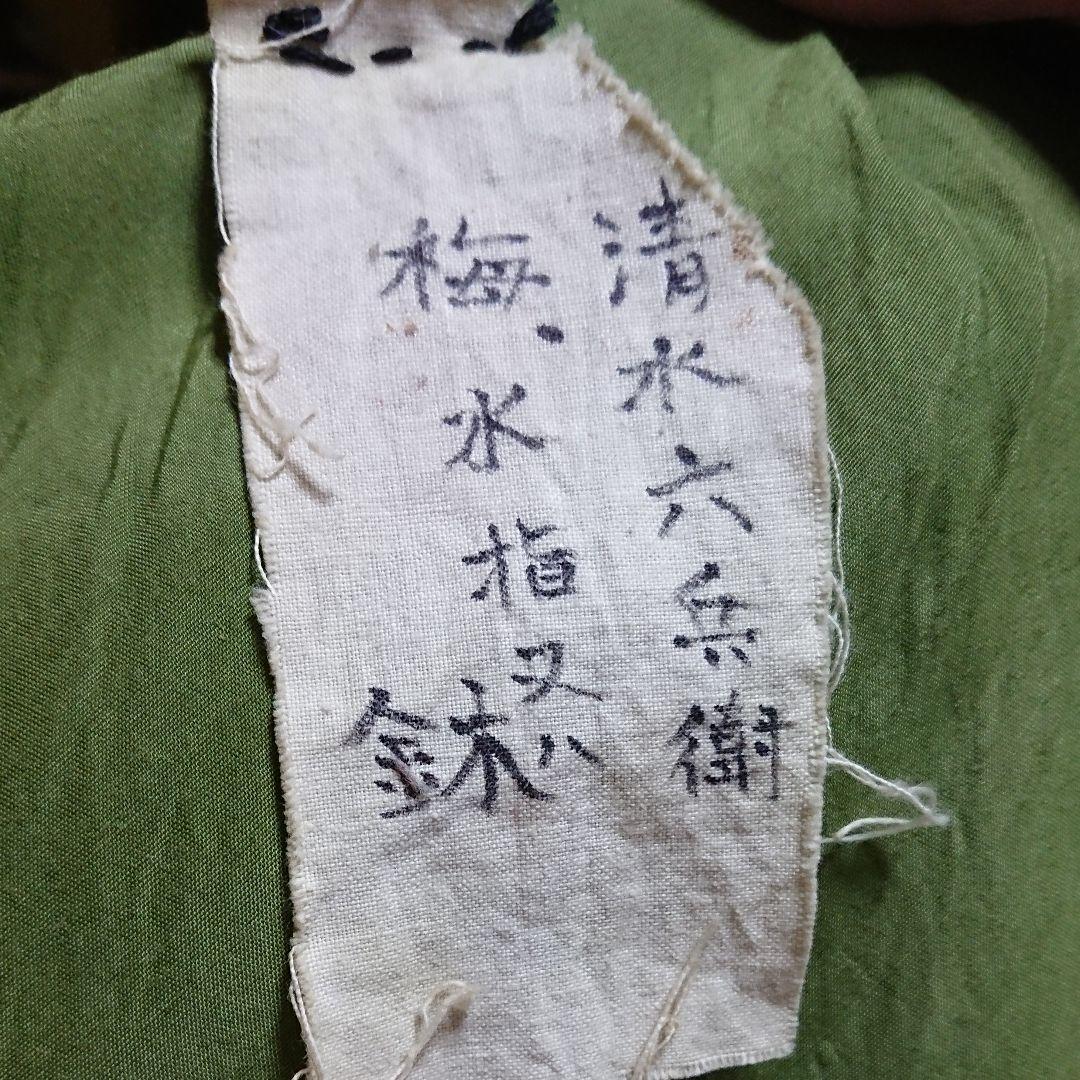 清水六兵衛
梅・水指又ハ
鉢